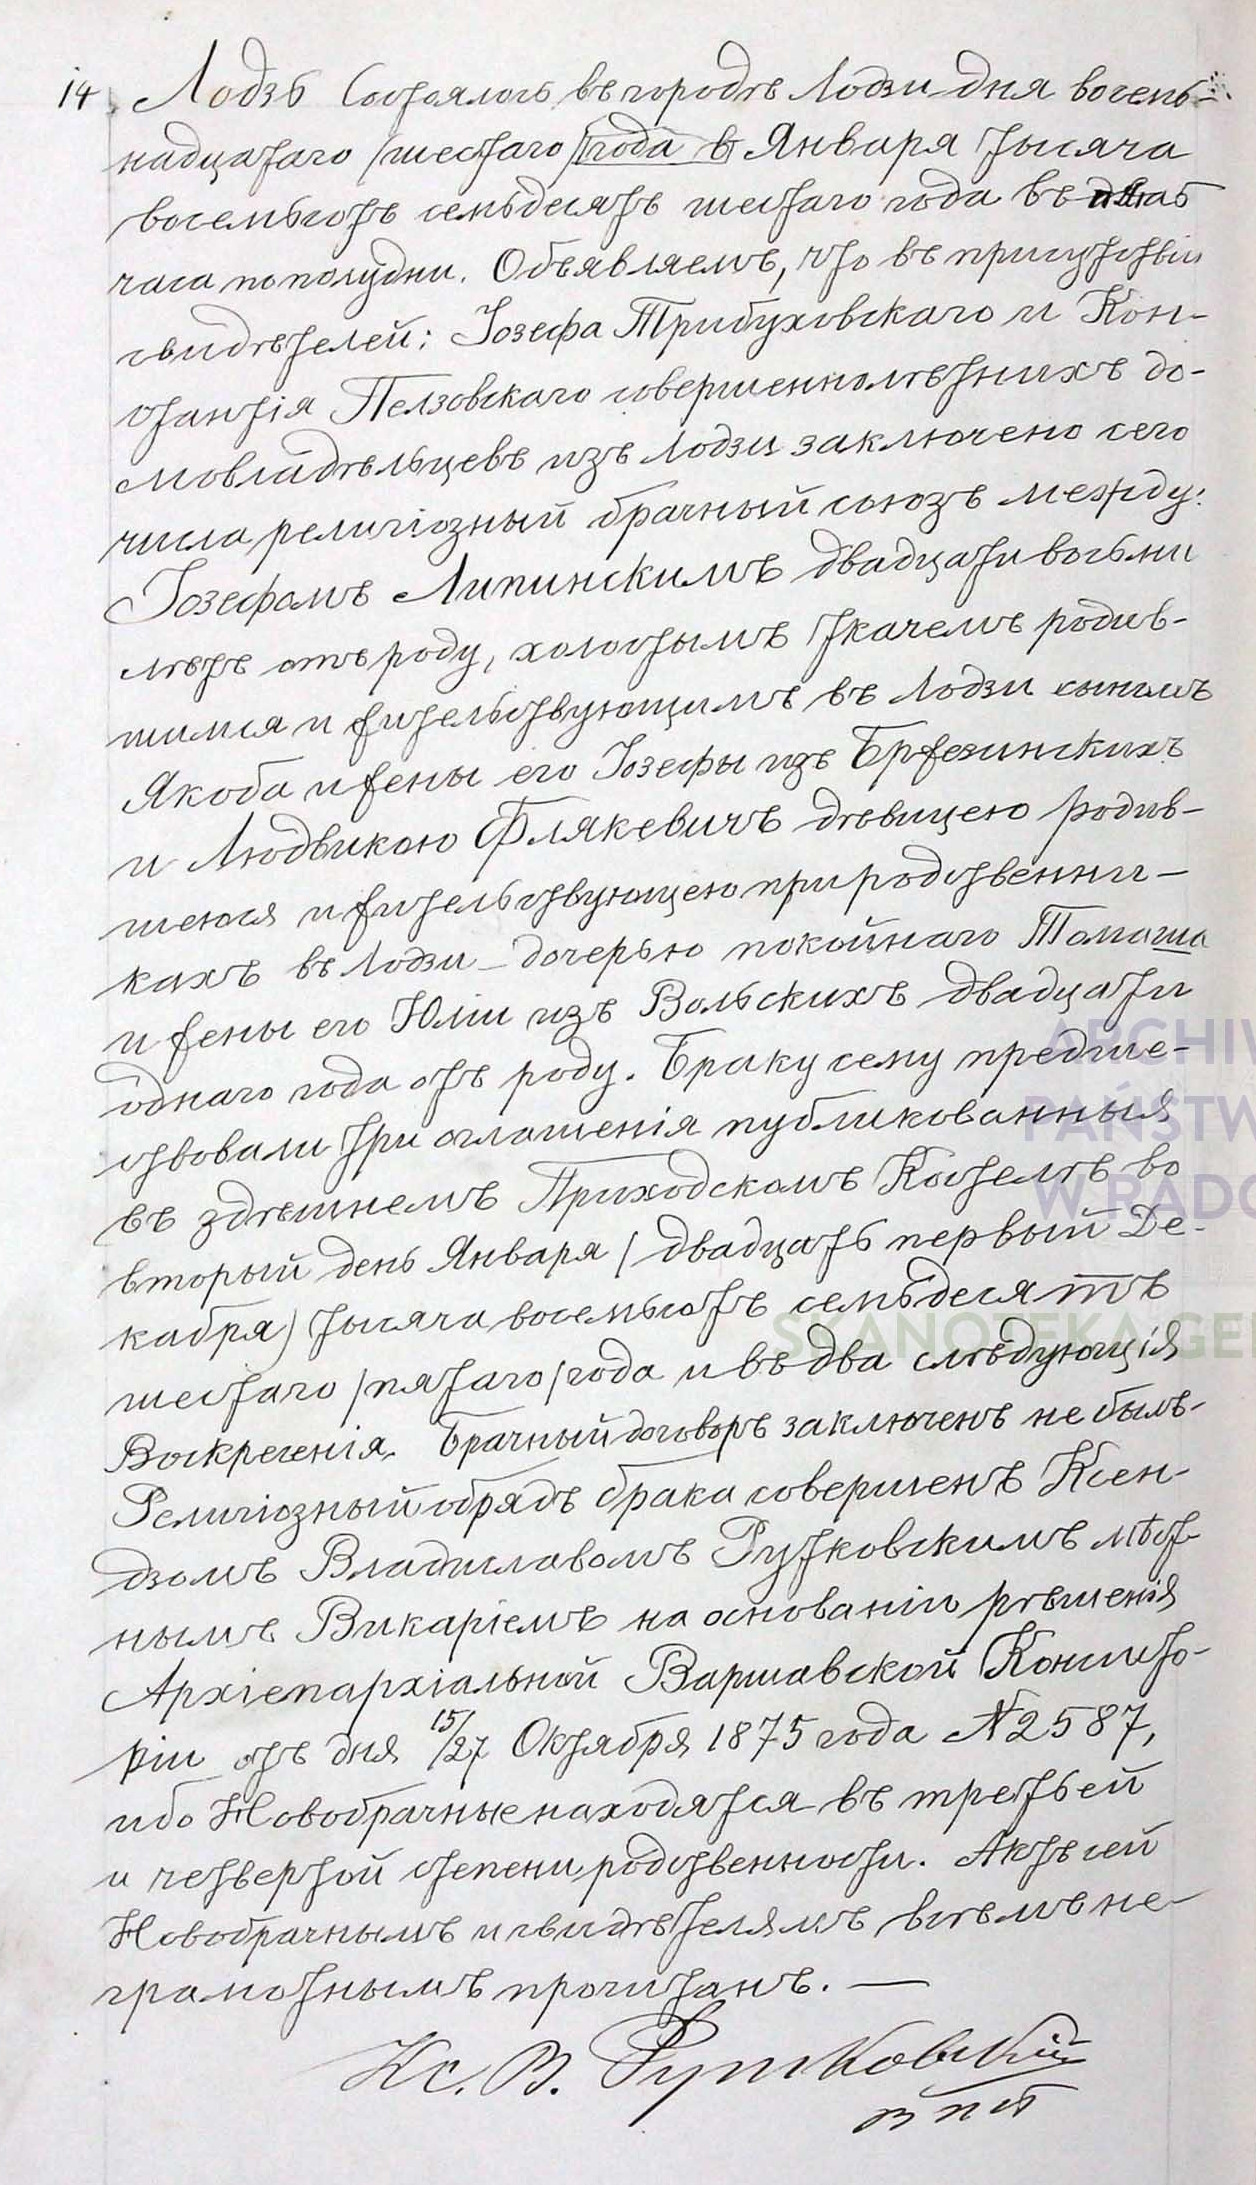 14 Лодзь Состоялось въ городѣ Лодзи дня восемь-
надцатаго /шестаго/ года в Января тысяча
восемьсотъ семьдесятъ шестаго года въ
часа по полудни. Объявляемъ, что въ присутствіи
свидѣтелей: Іозефа Трибуховскаго и Кон-
стантія Пелзовскаго совершеннолѣтнихъ до-
мовладѣльцевъ изъ Лодзи заключено сего
числа религіозный брачный союзъ между:
Іозефомъ Липинскимъ двадцати восьми
лѣтъ отъ роду, холостымъ ткачемъ родив-
шимся и жительствующимъ въ Лодзи сыномъ
Якоба и жены его Іозефы изъ Бржезинскихъ
и Людвикою Флякевичъ дѣвицею родив-
шеюся и жительствующею при родственни-
кахъ въ Лодзи – дочерью покойнаго Томаша
и жены его Юліи изъ Вольскихъ двадцати
однаго года отъ роду. Браку сему предше-
ствовали три оглашенія публикованныя
въ здѣшнемъ Приходскомъ Костелѣ во
вторый день Января / двадцать первый Де-
кабря) тысяча восемьсотъ семьдесятъ
шестаго /пятаго/ года и въ два слѣдующія
Воскресенія. Брачный договоръ заключенъ не былъ.
Религіозный обрядъ брака совершенъ Ксен-
дзомъ Владиславомъ Рутковскимъ мѣст-
нымъ Викаріемъ на основаніи рѣшенія
Архіепархіальной Варшавской Консисто-
ріи отъ дня 15/27 Октября 1875 года N 2587,
ибо Новобрачные находятся въ третьей
и четвертой степени родственности. Актъ сей
Новобрачнымъ и свидѣтелямъ всѣмъ не-
грамотнымъ прочитанъ. —
Кс. В. Рутковскій
ARCHIW
PAŃSTW
W RADO
SKANOTEKA GE